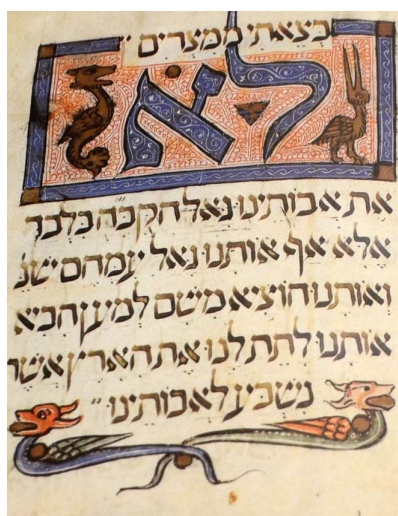 בצאתי ממצרים
לא
את אבותינו גאל הקב״ה בלבד
אלא אף אותנו גאל עמהם שנ
ואותנו הוציא משם למען הביא
אותנו לתת לנו את הארץ אשר
נשבע לאבותינו